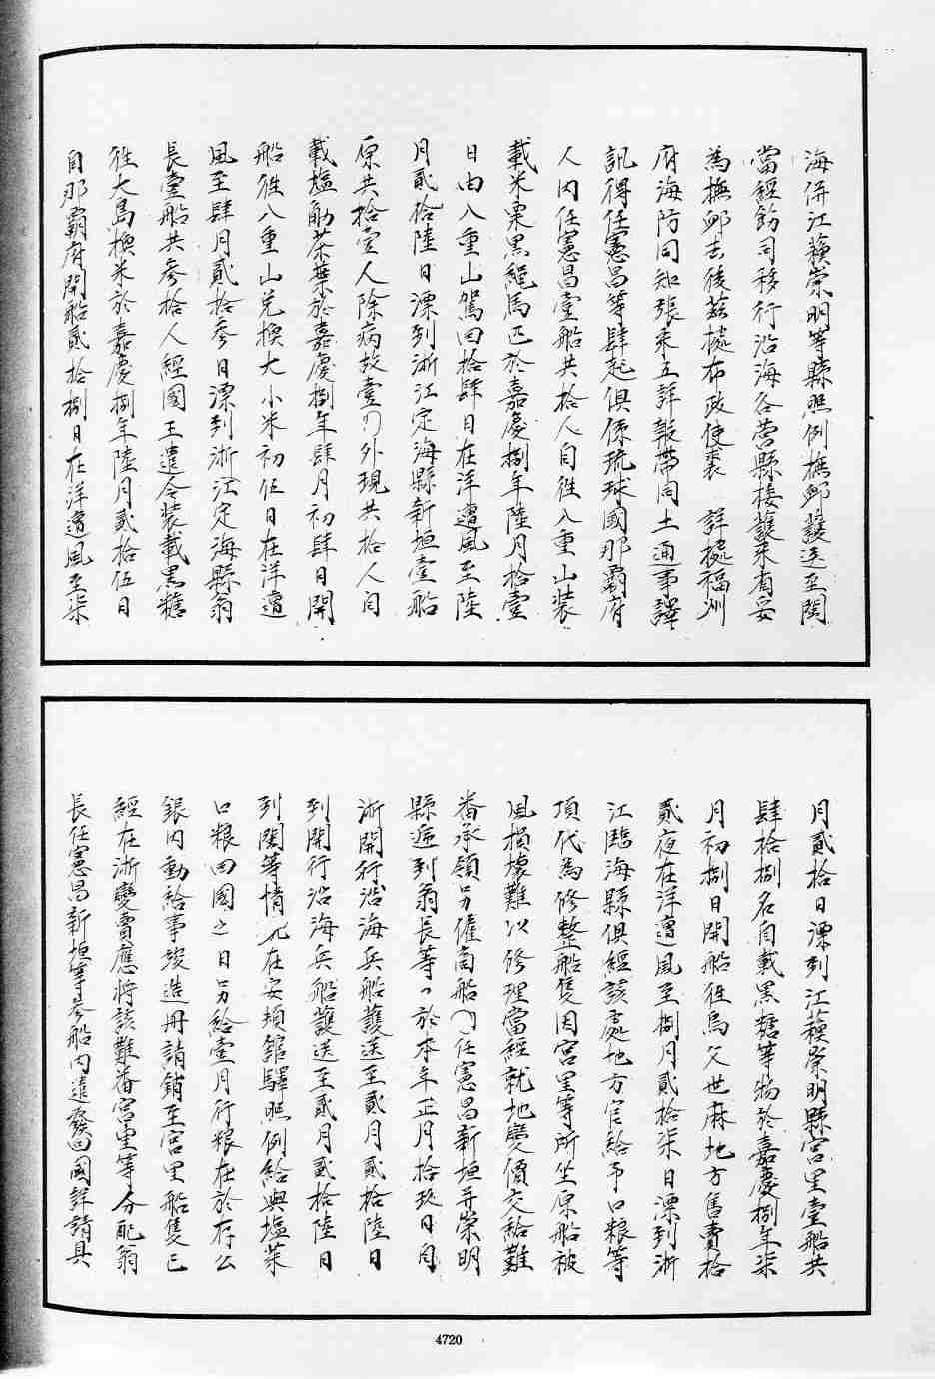 海併江蘓崇明等縣照例撫卹護送至閩
當經飭司移行沿海各營縣接護來省妥
為撫卹去後茲據布政使裘　詳據福州
府海防同知張采五詳報帶同土通事譯
訊得任憲昌等肆起俱係琉球國那霸府
人内任憲昌壹船共拾人自往八重山裝
載米粟黑繩馬匹於嘉慶捌年陸月拾壹
日由八重山駕回拾肆日在洋遭風至陸
月貳拾陸日漂到浙江定海縣新垣壹船
原共拾壹人除病故壹〇外現共拾人自
載塩觔茶葉於嘉慶捌年肆月初肆日開
船徃八重山兌換大小米初伍日在洋遭
風至肆月貳拾參日漂到浙江定海縣翁
長壹船共參拾人經國王遣令裝載黑糖
徃大島換米於嘉慶捌年陸月貳拾伍日
自那霸府開船貳拾捌日在洋遭風至柒
月貳拾日漂到江蘓崇明縣宮里壹船共
肆拾捌名自載黑糖等物於嘉慶捌年柒
月初捌日開船徃烏久世麻地方售賣拾
貳夜在洋遭風至捌月貳拾柒日漂到浙
江臨海縣俱經該處地方官給予口粮等
項代為修整船隻因宮里等所坐原船被
風損壞難以修理當經就地變價交給難
番承領另僱商船〇任憲昌新垣并崇明
縣遞到翁長等〇於本年正月拾玖日自
浙開行沿海兵船護送至貳月貳拾陸日
到開行沿海兵船護送至貳月貳拾陸日
到閩等情凡在安頓館驛照例給與塩菜
口粮回國之日另給壹月行粮在於存公
銀内動給事竣造冊請銷至宮里船隻已
經在浙變賣應將該難番宮里等分配翁
長任憲昌新垣等參船内遣發回國詳請具
4720